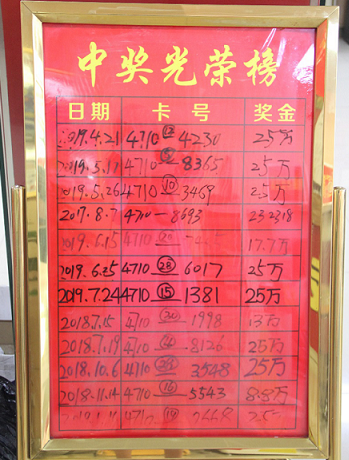 中奖光荣榜
日期 卡号 奖金
2019.4.21 4710 ⑫ 4230 25万
2019.5.11 4710 8365 25万
2019.5.26 4710 ⑩ 3469 2.5万
2017.8.7 4710-8693 232318
2019.6.15 4710 17.7万
2019.6.25 4710 ㉘ 6017 25万
2019.7.24 4710 ⑮ 1381 25万
2018.7.15 4710 ⑳ 1998 13万
2018.7.19 4710 8126 25万
2018.10.6 4710 3548 25万
2018.11.14 4710 ⑯ 5543 8.8万
4710